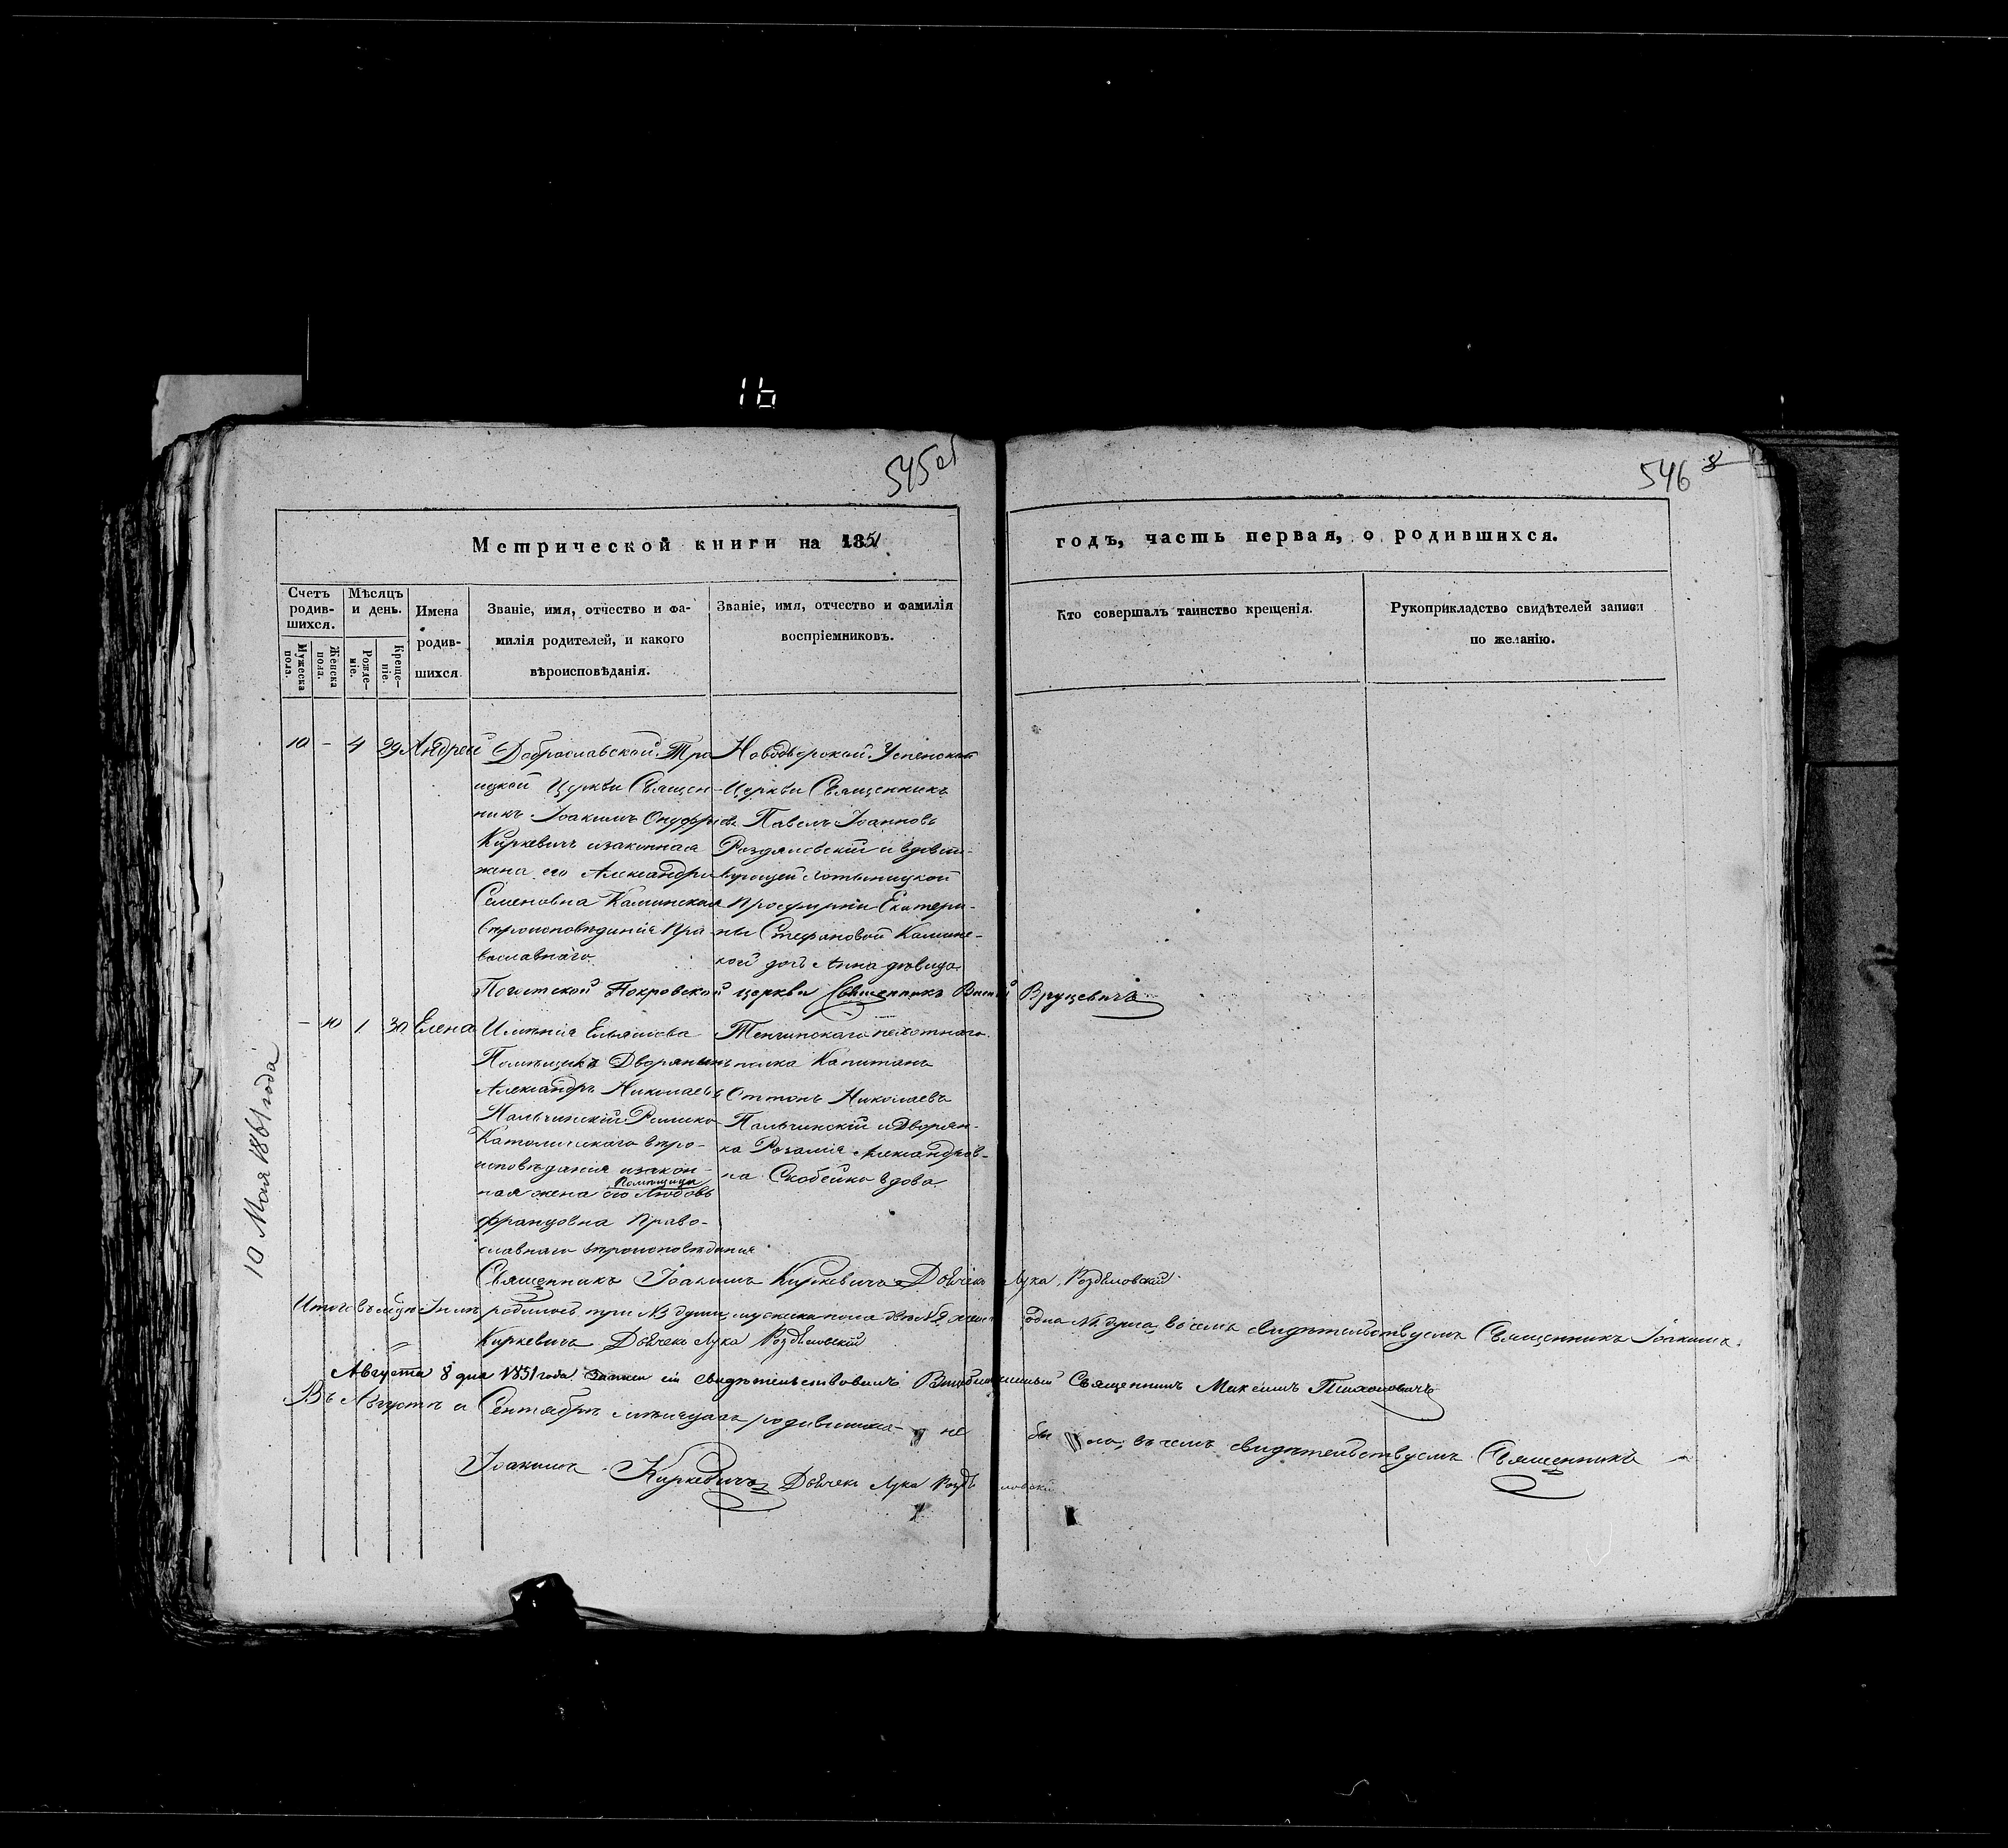 16
545 об
546
8
Метрической книги на 1851
годъ, часть первая, о родившихся.
Счетъ родив-шихся.
Мужеска пола.
Женска пола.
Мѣсяцъ и день.
Рожде-ніе.
Креще-ніе.
Имена
родив-
шихся
Званіе, имя, отчество и фа-
милія родителей, и какого
вѣроисповѣданія.
Званіе, имя, отчество и фамилія
воспріемниковъ.
Кто совершалъ таинство крещенія.
Рукоприкладство свидѣтелей записи
по желанію.
10 - 4 29 Андрей
Доброславской Тро
ицкой Церкви Священ-
никъ Іоакимъ Онуфріевъ
Киркевичъ и законная
жена его Александра
Семеновна Каминская
вѣроисповѣданія Пра
вославнаго.
Новодворской Успенской
Церкви Священникъ
Павелъ Іоанновъ
Роздяловскій и вдовст-
вующей
Просфирни Екатери-
ны Стефановой Камин-
кой дочь Анна дѣвица
Покровской церкви Священникъ Вруцевичъ
- 10 1 30 Елена
Имѣнія Ельяшова
Помѣщикъ Дворянинъ
Александръ Николаевъ
Пальчинскій Римско
Католическаго вѣро-
исповѣданія и закон-
помѣщица
ная жена его Любовь
Францовна Право-
славнаго вѣроисповѣданія
Тенгинскаго пѣхотнаго
полка Капитанъ
Оттонъ Николаевъ
Пальчинскій и Дворян-
ка Розалія Александров-
на Скобейко вдова
Священникъ Іоакимъ Киркевичъ Дьячекъ Лука Роздяловскій
10 Мая 1861 года
Итого въ родилось три №3 души, мужеска пола двѣ №2, одна №1 душа, въ чемъ свидѣтельствуемъ Священникъ Іоакимъ
Киркевичъ Дьячекъ Лука Роздяловскій
Августа 8 дня 1851 года Записи сіи свидѣтельствовалъ Священникъ Максимъ
Въ Августѣ и Сентябрѣ мѣсяцахъ родившихся не было, въ чемъ свидѣтельствуемъ Священникъ
Іоакимъ Киркевичъ Дьячекъ Лука Роздяловскій